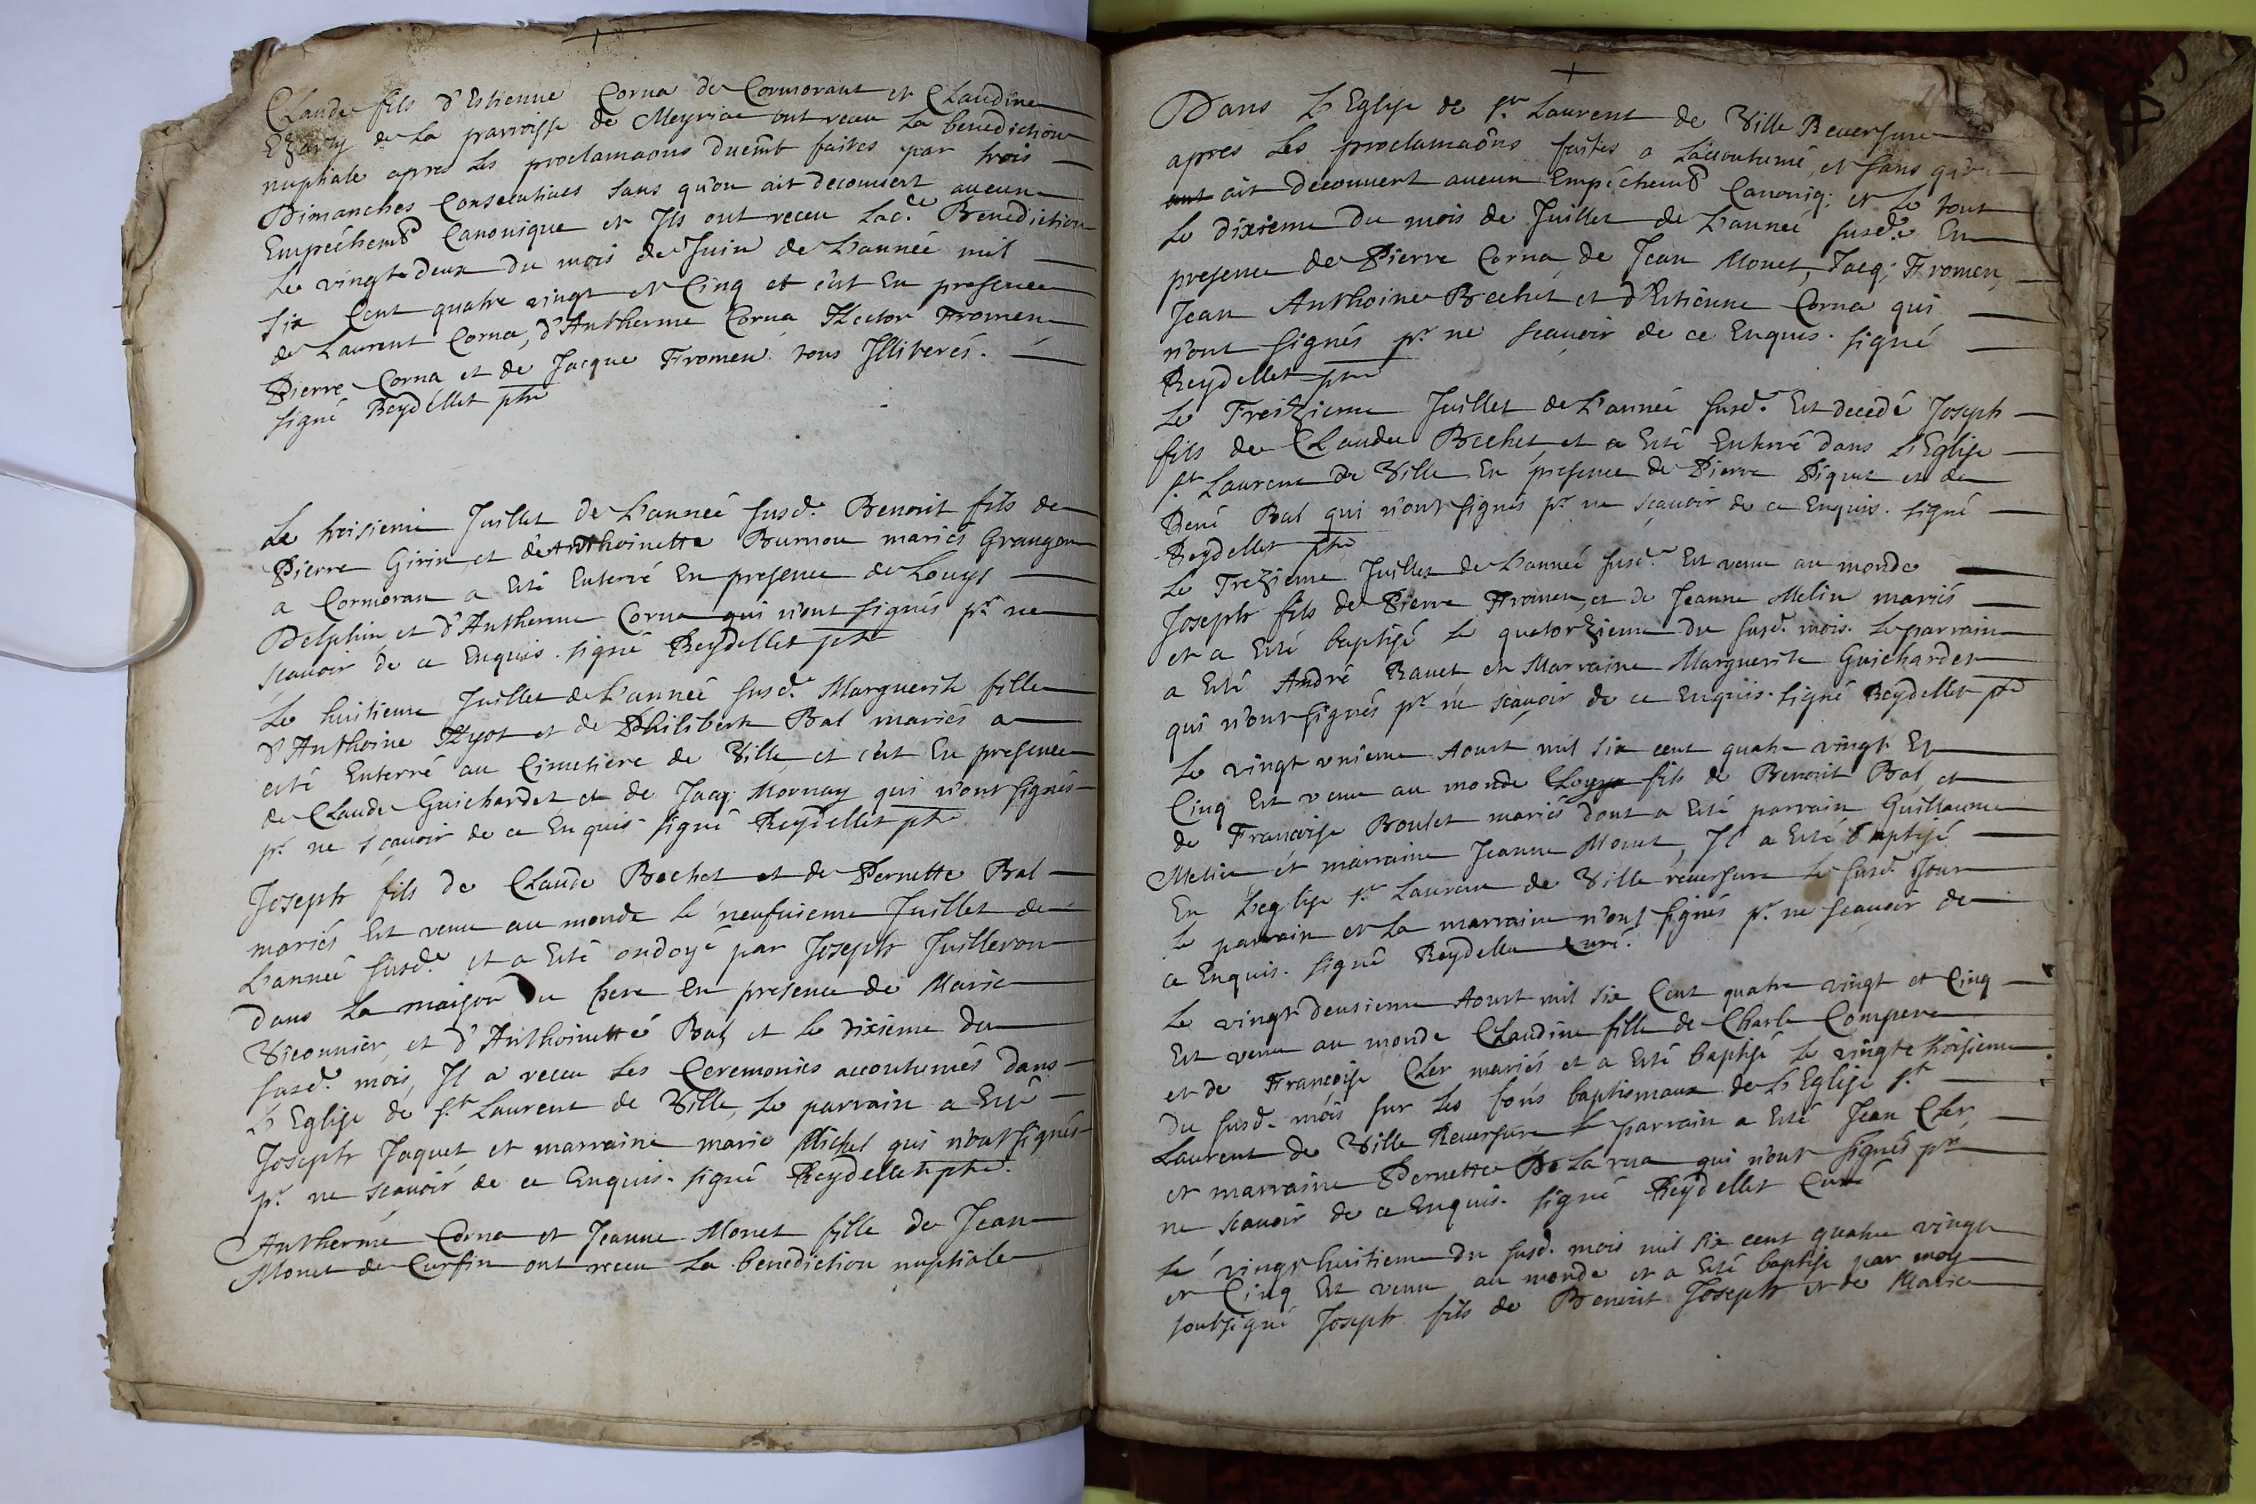 Claude fils d'Estienne Corna de Cormorant et Claudine
de la parroisse de Meyria ont receu la benediction
nuptiale apres les proclamaōns duëmt faites par trois
Dimanches Consecutives sans qu'on ait decouvert aucun
Empéchemt Canonique et Ils ont receu lad.e Benediction
Le vingt deux du mois de Juin de L'année mil
six Cent quatre vingt et Cinq et c'est En presence
de Laurent Corna, d'Antherme Corna Hector Fromen
Pierre Corna et de Jacque Fromen tous Illiterés.
signé Reydellet ptre
Le troisieme Juillet de L'année susd.e Benoit fils de
Pierre Girin et de Anthoinette Bournou mariés Grangers
a Cormoran a Esté Enterré En presence de Louys
Delphin et d'Antherme Corna qui n'ont signés pr ne
scavoir de ce Enquis. signé Reydellet ptre
Le huitieme Juillet de L'année susd.e Marguerite fille
d'Anthoine Hyot et de Philiberte Bal mariés a
esté Enterré au Cimetière de Ville et c'est En presence
de Claude Guichardet et de Jacq; Mornay qui n'ont signés
pr ne scavoir de ce Enquis signé Reydellet ptre
Joseph fils de Claude Bechet et de Pernette Bal
mariés Est venu au monde le neufuieme Juillet de
L'année susd.e et a Esté ondoyé par Joseph Juilleron
dans la maison Du Pere En presence de Marie
Viconnier, et d'Anthoinette Bal, et le dixieme du
susd.e mois, Il a receu les Ceremonies accoutumés dans
L'Eglise de St Laurent de Ville, Le parrain a Esté
Joseph Jaquet et marraine marie Michel qui n'ont signés
pr ne scavoir de ce Enquis. signé Reydellet ptre.
Anthermé Corna et Jeanne Monet fille de Jean
Monet de Curfin ont receu la benediction nuptiale
Dans L'Eglise de St Laurent de Ville Reversure
apres Les proclamaōns faites a L'accoutumé, et sans qu'on
ont ait decouvert aucun Empéchemt Canoniq; et Le tout
Le dixieme du mois de Juillet de L'année susd.e En
presence de Pierre Corna de Jean Monet, Jacq; Fromen,
Jean Anthoine Bechet et d'Estienne Corna qui
n'ont signés pr ne scavoir de ce Enquis. signé
Reydellet ptre
Le Treizieme Juillet de L'année susd.e Est decedé Joseph
fils de Claude Bechet, et a Esté Enterré dans L'Eglise
St Laurent de Ville En presence de Pierre Piquet et de
René Bal qui n'ont signés pr ne scavoir de ce Enquis. signé
Reydellet ptre
Le Trezieme Juillet de L'année susd.e Est venu au monde
Joseph fils de Pierre Fromen, et de Jeanne Melin mariés
et a Esté baptisé Le quatorzieme du susd. mois. Le parrain
a Esté André Ravet et Marraine Marguerite Guichardet
qui n'ont signés pr ne scavoir de ce Enquis. signé Reydellet ptre
Le vingt unieme Aoust mil six cent quatre vingt Et
Cinq Est venu au monde Louys fils de Benoit Bal, et
de Francoise Boulet mariés dont a Esté parrain Guillaume
Melin et marraine Jeanne Monet, Il a Esté Baptisé
En L'eglise St Laurent de Ville reversure Le susd. Jour
Le parrain et La marraine n'ont signés pr ne scavoir de
ce Enquis. signé Reydellet Curé.
Le vingt deusieme Aoust mil six Cent quatre vingt et Cinq
Est venu au monde Claudine fille de Charle Compere
et de Francoise Cler mariés et a Esté baptisé Le vingte troisieme
du susd. mois sur Les fons baptismaux de L'Eglise St
Laurent de Ville Reversure Le parrain a Esté Jean Cler
et marraine Pernette De La rua qui n'ont signés pr
ne scavoir de ce Enquis. signé Reydellet Curé
Le vingt huitieme du susd. mois mil six cent quatre vingt
et Cinq Est venu au monde et a Esté baptisé par moy
soubsigné Joseph fils de Benoit Joseph et de Marie